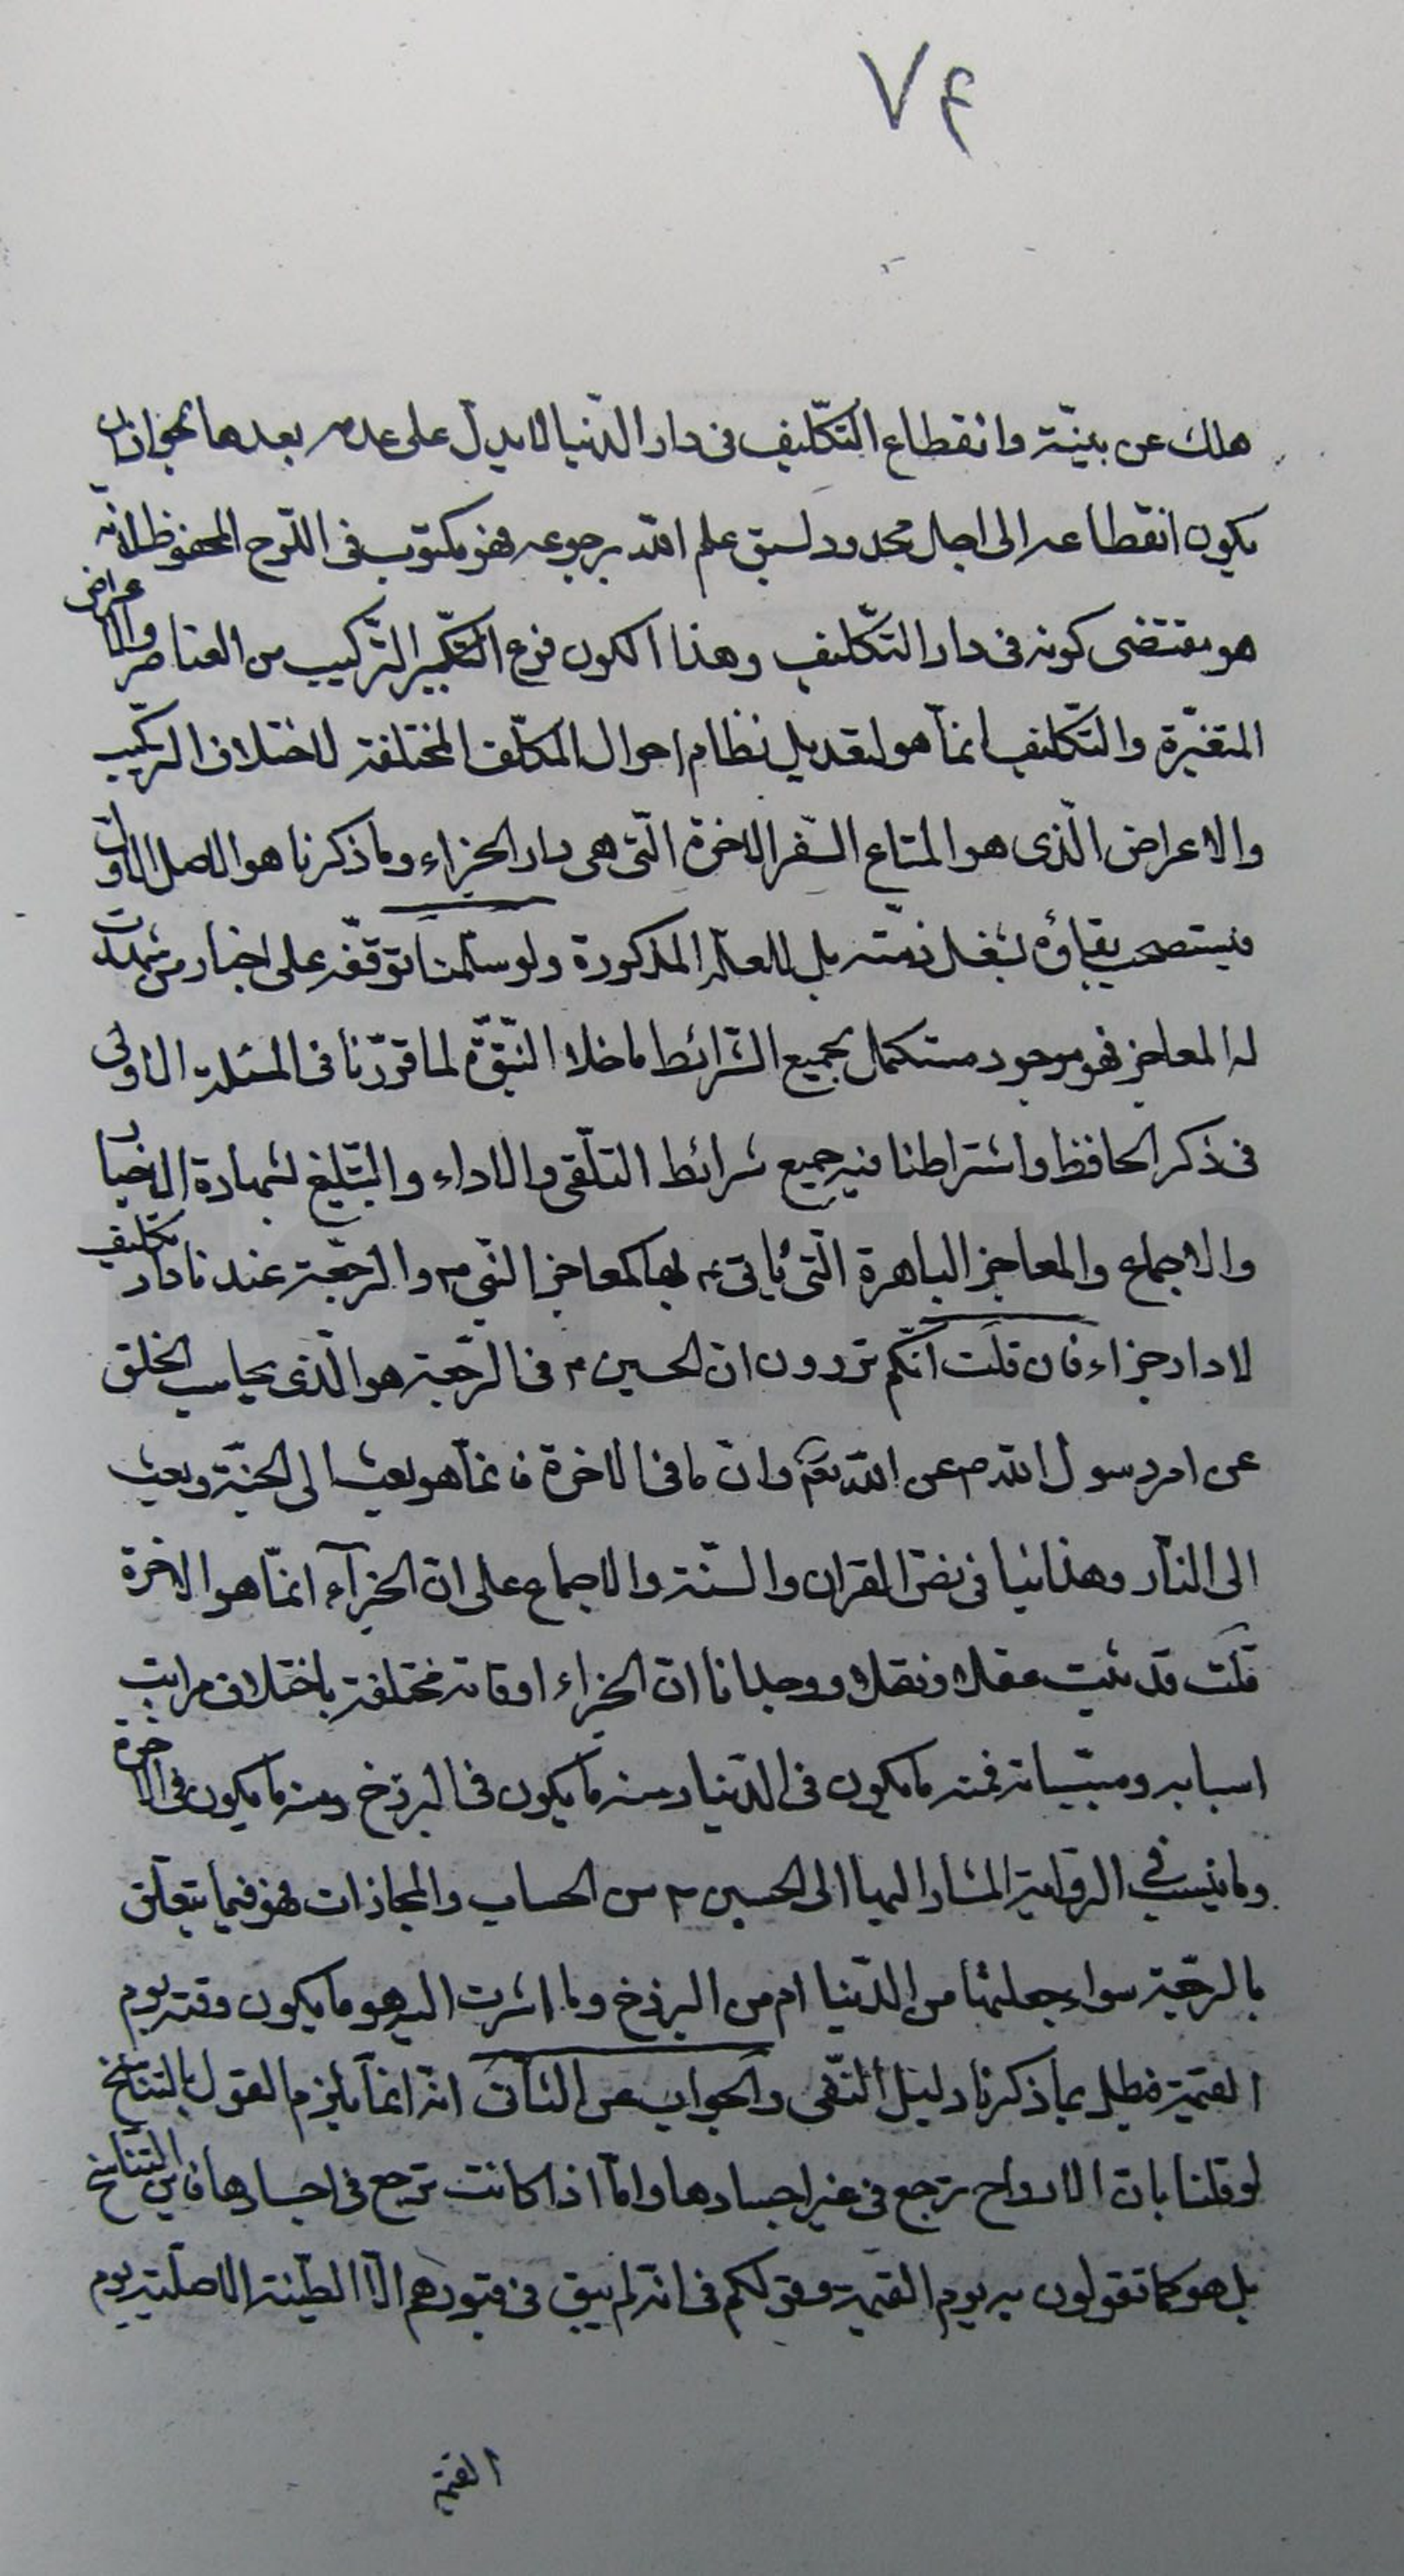 ٧۴
هلك عن بينّة وانقطاع التكّليف فى دار الدّنيا لا يدلّ على عدمه بعدها لجواز ان
يكون انقطاعه الى اجل محدود لسبق علم الله برجوعه فهو مكتوب فى اللوح المحفوظ لانّه
هو مقتضى كونه فى دار التكّليف وهذا الكون فرع التركيب من العناصر والاعراض
المتغيّرة والتكّليف انمّا هو لتعديل نظام احوال المكلّف المختلفة لاختلاف التركيب
والاعراض الّذى هو المتاع السّفر الاخرة الّتى هى دار الجزاء وما ذكرنا هو الاصل الاوّل
فيستصحب بقاؤه لشغل ذمّته بل للعلّة المذكورة ولو سلّمنا توقّفه على اخبار من شهدت
له المعاجز فهو موجود مستكمل بجميع الشّرائط ما خلا النّبوّة لما قرّرنا فى المسئلة الاولى
فى ذكر الحافظ واشتراطنا فيه جميع شرائط التلّقى والاداء والتبّليغ لشهادة الاخبار
والاجماع والمعاجز الباهرة الّتى ياتى ع بها كمعاجز النّبى ص والرّجعة عندنا دار تكليف
لا دار جزاء فان قلت انّكم تروون ان الحسين ع فى الرّجعة هو الّذى يحاسب الخلق
عن امر رسول الله ص عن الله تعم وان ما فى الاخرة فانمّا هو بعث الى الجنّة وبعث
الى النّار وهذا ينافى نصّ القران والسّنة والاجماع على ان الجزاء انمّا هو الاخرة
قلت قد ثبت عقلا ونقلا ووجدانا انّ الجزاء اوقاته مختلفة باختلاف مراتب
اسبابه ومسبّباته فمنه ما يكون فى الدّنيا ومنه ما يكون فى البرزخ ومنه ما يكون فى الاخرة
وما ينسب فى الرّواية المشار اليها الى الحسين ع من الحساب والمجازات فهو فيما يتعلّق
بالرّجعة سواء جعلتها من الدّنيا ام من البرزخ وما اشرت اليه هو ما يكون وقته يوم
القيمة فبطل بما ذكرنا دليل النّفى والجواب عن الثّانى انّه انمّا يلزم القول بالتناسخ
لو قلنا بانّ الارواح ترجع فى غير اجسادها وامّا اذا كانت ترجع فى اجسادها فاين التناسخ
بل هو كما تقولون به يوم القيمة وقولكم فى انّه لم يبق فى قبورهم الّا الطّينة الاصليّة يوم
القيمة